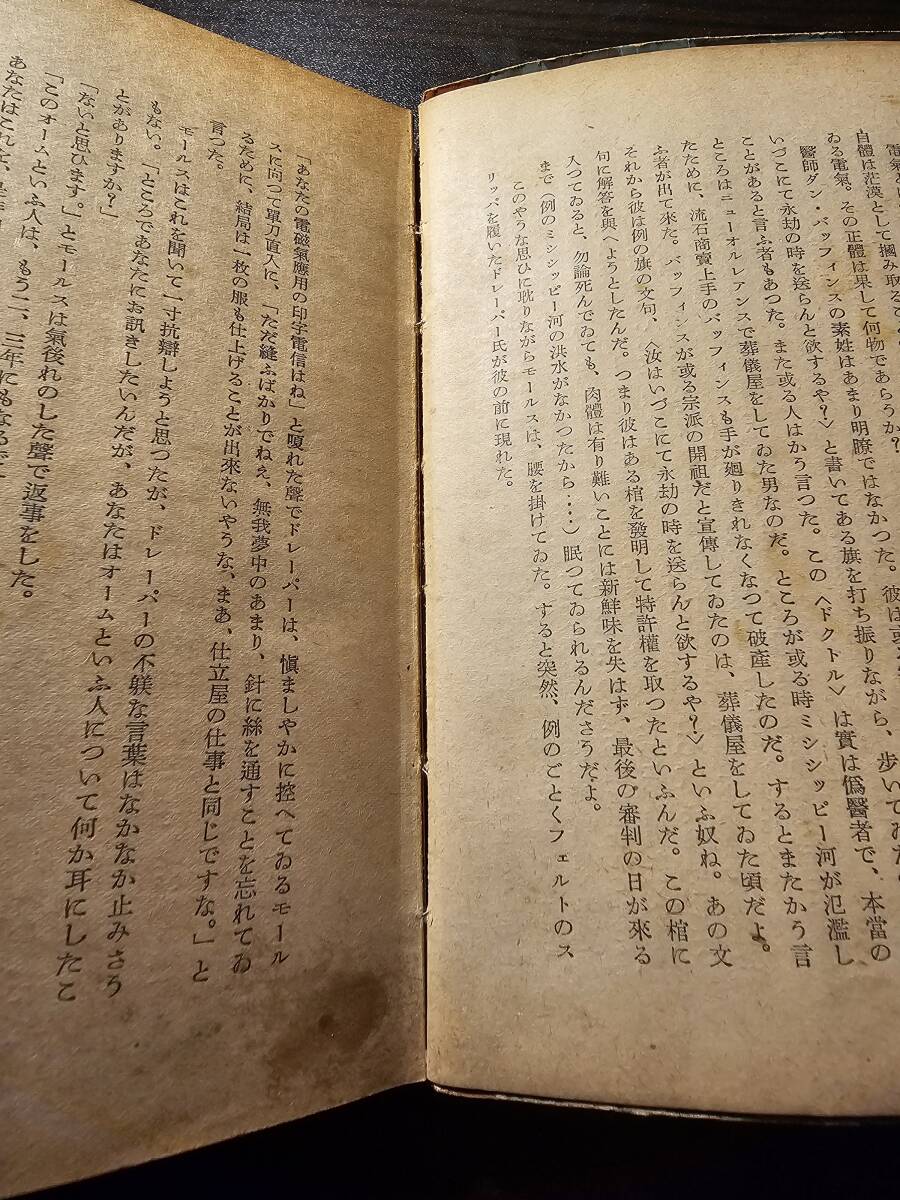 自體は茫漠として摑み取る
ゐる電氣。その正體は果して何物であらうか?
醫師ダン・バッフィンスの素姓はあまり明瞭ではなかつた。彼は或
いづこにて永劫の時を送らんと欲するや?〉と書いてある旗を打ち振りながら、歩いてゐた。
ことがあると言ふ者もあつた。また或る人はかう言つた。この〈ドクトル〉は實は僞醫者で、本當の
ところはニューオルレアンスで葬儀屋をしてゐた男なのだ。ところが或る時ミシシッピー河が氾濫し
たために、流石商賣上手のバッフィンスも手が廻りきれなくなつて破産したのだ。するとまたかう言
ふ者が出て來た。バッフィンスが或る宗派の開祖だと宣傳してゐたのは、葬儀屋をしてゐた頃だよ。
それから彼は例の旗の文句、〈汝はいづこにて永劫の時を送らんと欲するや?〉といふ奴ね。あの文
句に解答を與へようとしたんだ。つまり彼はある棺を發明して特許權を取つたといふんだ。この棺に
入つてゐると、勿論死んでゐても、肉體は有り難いことには新鮮味を失はず、最後の審判の日が來る
まで(例のミシシッピー河の洪水がなかつたから‥‥)眠つてゐられるんださうだよ。
このやうな思ひに耽りながらモールスは、腰を掛けてゐた。すると突然、例のごとくフェルトのス
リッパを履いたドレーパー氏が彼の前に現れた。
「あなたの電磁氣應用の印字電信はね」と嗄れた聲でドレーパーは、愼ましやかに控へてゐるモール
スに向つて單刀直入に、「ただ縫ふばかりでねえ、無我夢中のあまり、針に絲を通すことを忘れてゐ
るために、結局は一枚の服も仕上げることが出來ないやうな、まあ、仕立屋の仕事と同じですな。」と
言つた。
モールスはこれを聞いて一寸抗辯しようと思つたが、ドレーパーの不躾な言葉はなかなか止みさう
もない。「ところであなたにお訊きしたいんだが、あなたはオームといふ人について何か耳にしたこ
とがありますか?」
「ないと思ひます。」とモールスは氣後れのした聲で返事をした。
「このオームといふ人は、もう二、三年にもなる